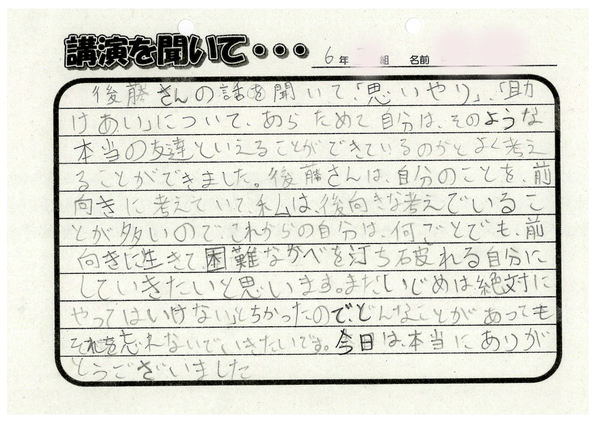 講演を聞いて・・・ 6年 組 名前
後藤さんの話を聞いて、「思いやり」、「助
けあい」について、あらためて自分は、そのような
本当の友達といえることができているのかとよく考え
ることができました。後藤さんは、自分のことを、前
向きに考えていて、私は、後向きな考えでいるこ
とが多いので、これからの自分は、何ごとでも、前
向きに生きて困難なかべを打ち破れる自分に
していきたいと思います。また「いじめは絶対に
やってはいけない」とちかったのでどんなことがあっても
それを忘れないでいきたいです。今日は、本当にありが
とうございました